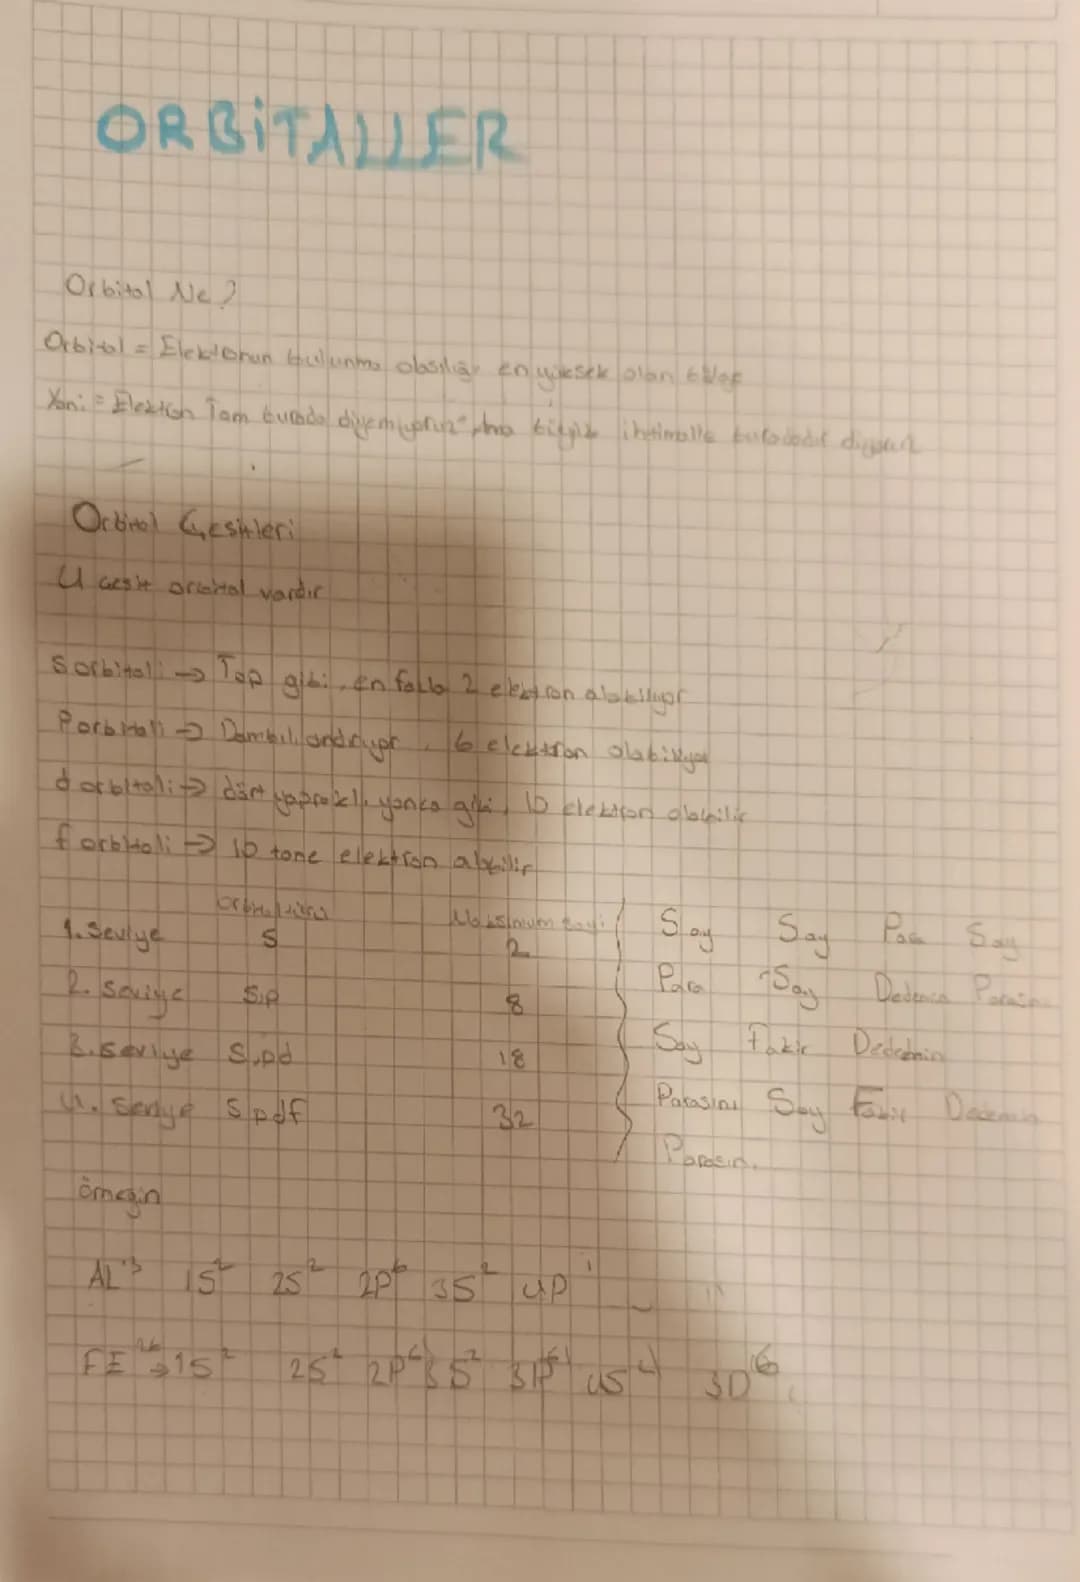 ORBİTALLER
Orbital Ne?
Orbital = Elektronun bulunma olasılığı en yüksek olan
Yani = Elektron Tam burada diyemiyoruz ama büyük ihtimalle buradadır diyoruz
Orbital Çeşitleri
4 çeşit orbital vardır
S orbitali → Top gibi, en fazla 2 elektron alabiliyor
P orbitali → 6 elektron alabiliyor
d orbitali → dört yapraklı yonca gibi, 10 elektron alabilir
f orbitali → tane elektron alabilir
orbital türü Maksimum sayı
1. Seviye S 2
2. Seviye S,p 8
3. seviye S,pd 18
4. Seviye Spdf 32
Say Say Para Say
Para Say Dedenin Parasını
Say Fakir Dedenin
Parasını Say Fakir Dedenin
Parasın.
örneğin
AL¹³ 1S² 2S² 2P⁶ 3S² 4P¹
FE²⁶ → 1S² 2S² 2P⁶ 3S² 3P⁶ 4S² 3D⁶